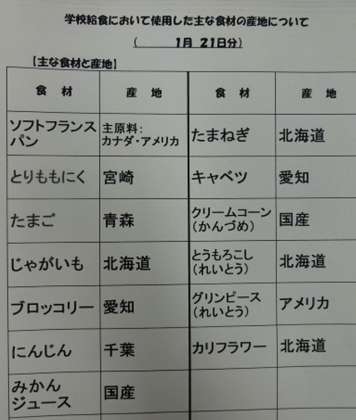 学校給食において使用した主な食材の産地について
（　　　1月 21日分）
【主な食材と産地】
食　材　産　地　食　材　産　地
ソフトフランス
パン
主原料：
カナダ・アメリカ
たまねぎ　北海道
とりももにく　宮崎　キャベツ　愛知
たまご　青森
クリームコーン
（かんづめ）
国産
じゃがいも　北海道
とうもろこし
（れいとう）
北海道
ブロッコリー　愛知
グリンピース
（れいとう）
アメリカ
にんじん　千葉　カリフラワー　北海道
みかん
ジュース
国産